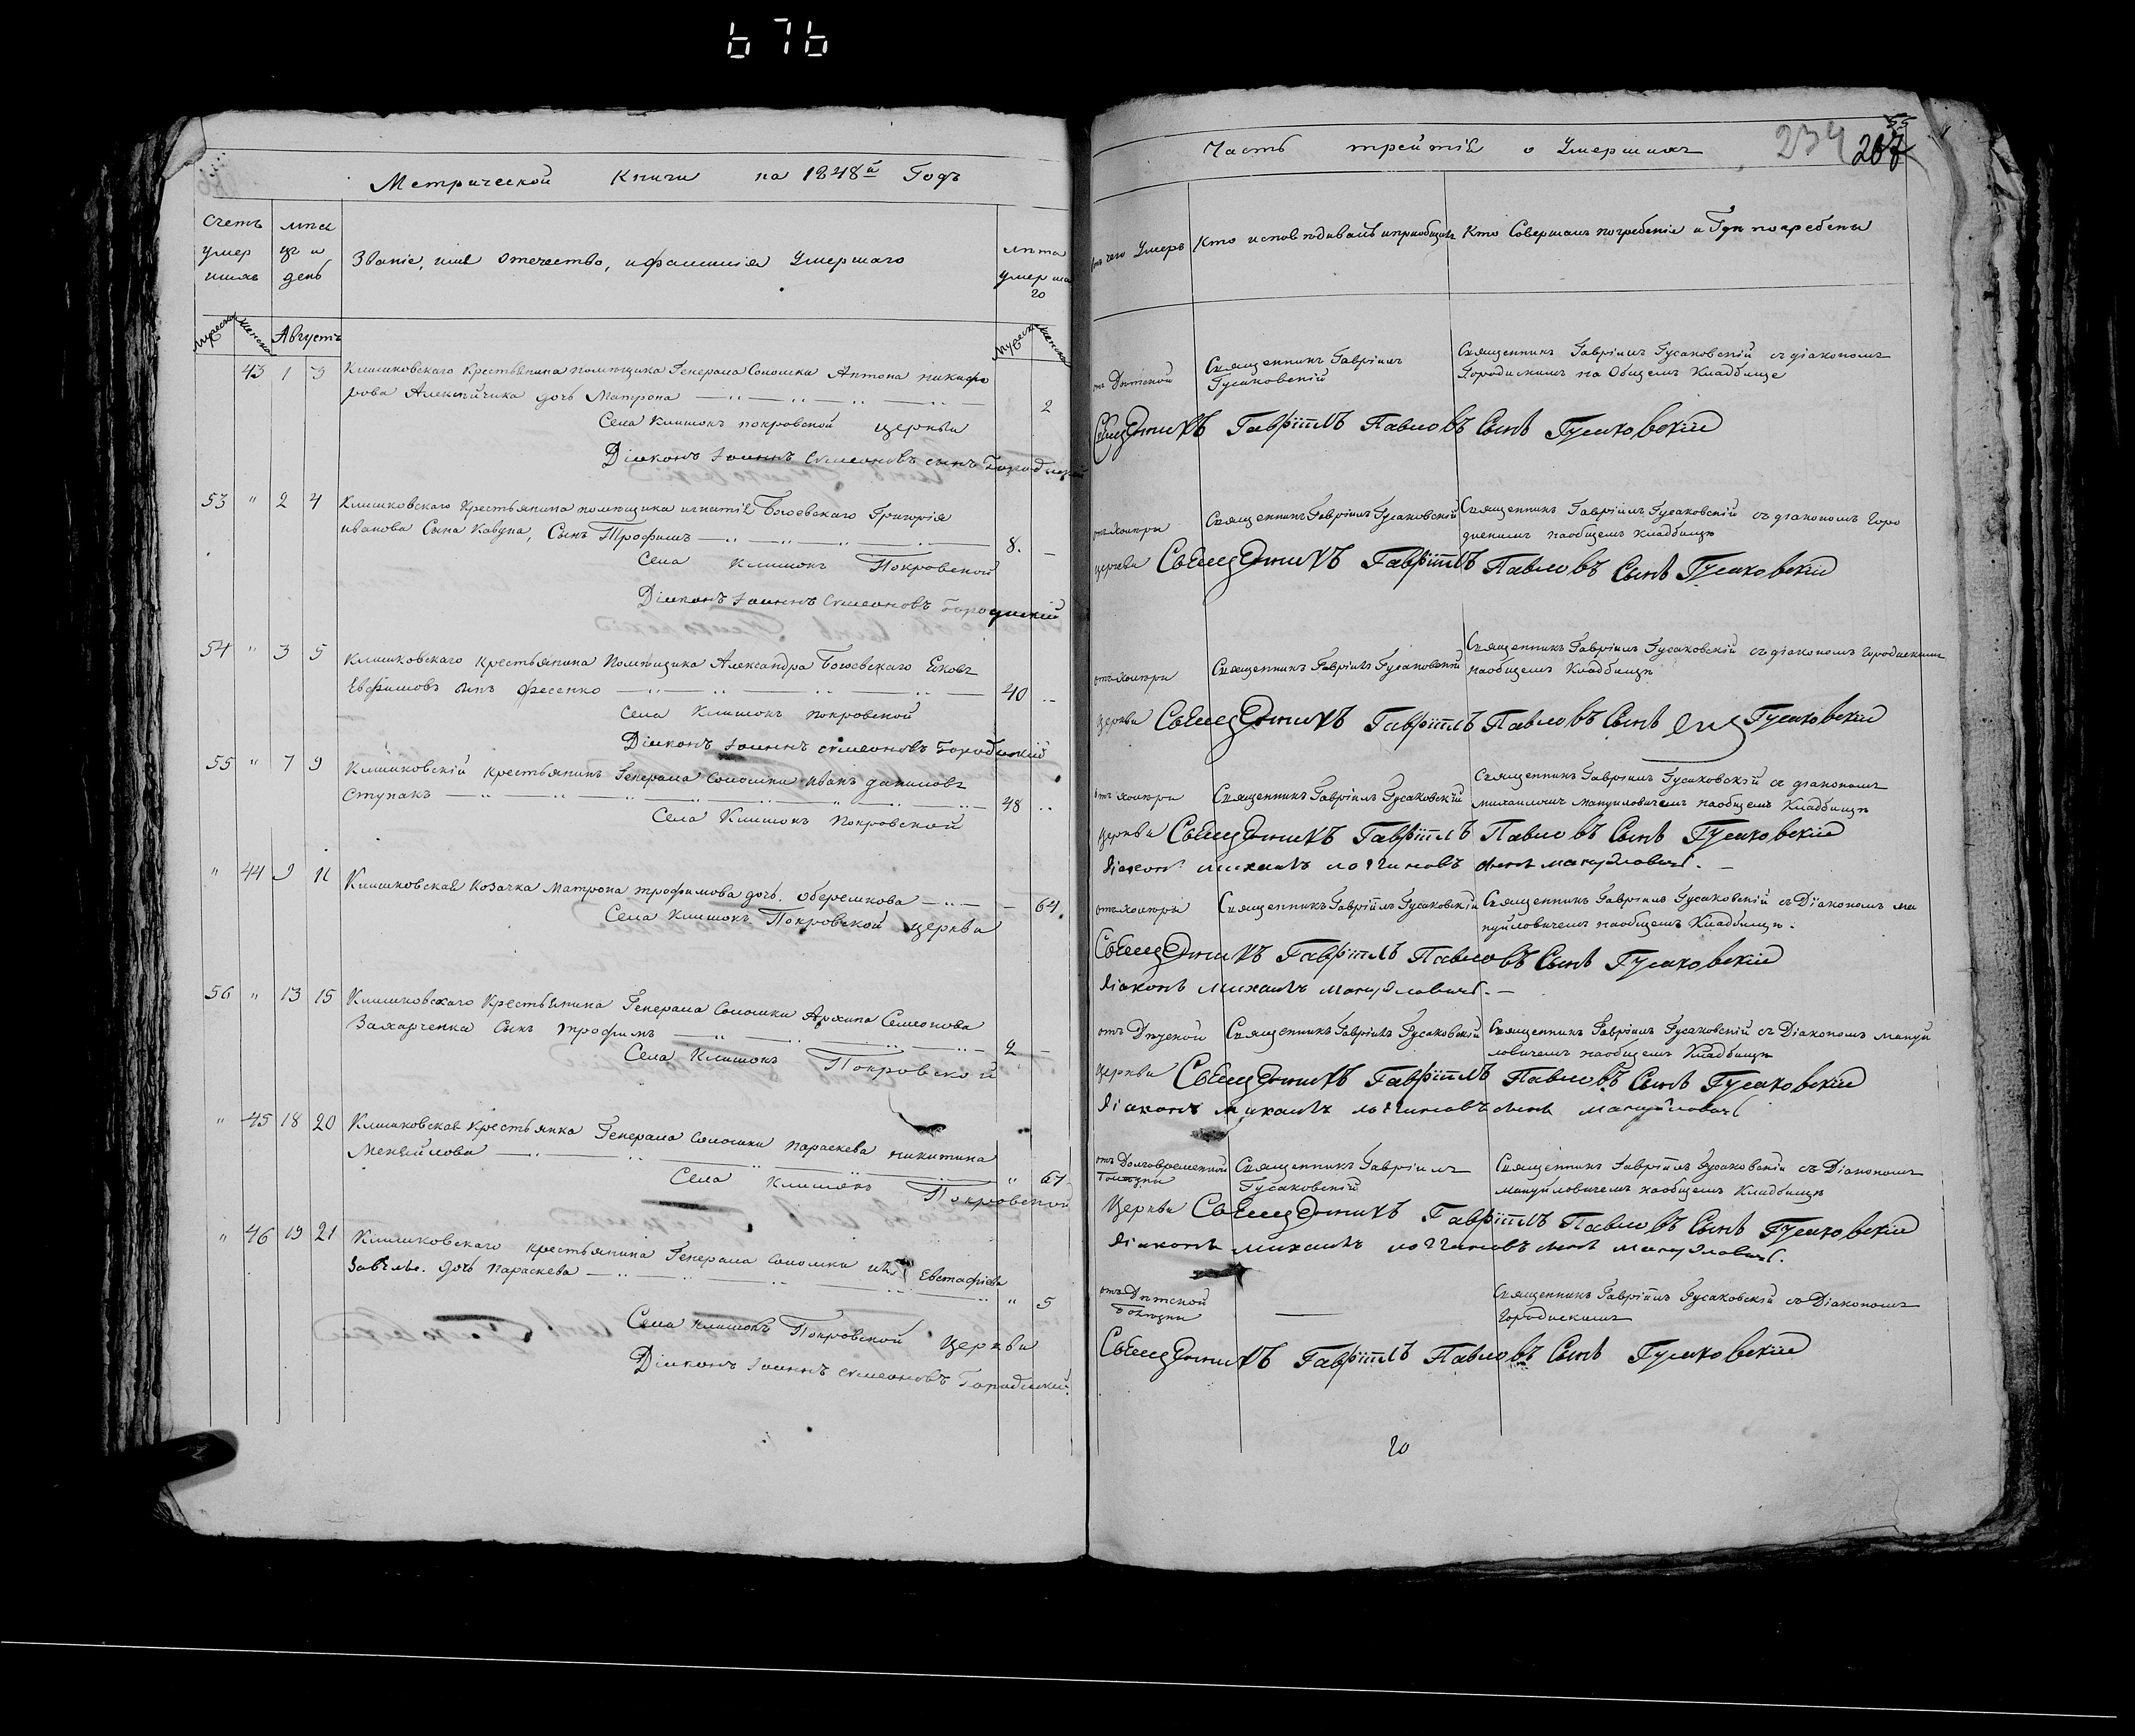 676
Метрической Книги на 1848й Годъ
Счетъ умер шихъ
мѣся ца и день
Званіе, имя отечество, и фамилія Умершаго
лѣта умерша го
Мужеска Женска
Августъ
Мужеск Женска
43 1 3 Клишковскаго Крестьянина помѣщика Генерала Соломки Антона Никифо
рова Алексѣйчика дочь Матрона 2
Села Клишокъ покровской церкви
Діяконъ Іоаннъ Симеоновъ сынъ Городиский
53 " 2 4 Клишковскаго Крестьянина помѣщика игнатія Боговскаго Григорія
иванова Сына Кавуна, Сынъ Трофимъ 8.
Села Клишокъ Покровской
Діяконъ Іоаннъ Симеоновъ Городиский
54 " 3 5 Клишковскаго крестьянина Помѣщика Александра Боговскаго Яковъ
Евфимовъ сынъ фесенко 40
Села Клишокъ покровской
Діяконъ Іоаннъ Симеоновъ Городиский
55 " 7 9 Клишковскій крестьянинъ Генерала Соломки Иванъ даниловъ
Ступакъ 48
Села Клишокъ Покровской
" 44 9 11 Клишковская козачка Матрона трофимова дочь. оберемкова 64.
Села Клишокъ Покровской церкви
56 " 13 15 Клишковскаго Крестьянина Генерала Соломки Архипа Семенова
Захарченка Сынъ трофимъ 2
Села Клишокъ Покровской
" 45 18 20 Клишковская крестьянка Генерала Соломки Параскева никитина
" 67
Села Клишокъ Покровской
" 46 19 21 Клишковскаго крестьянина Генерала Соломки Евстафія
дочь Параскева " 5
Села Клишокъ Покровской церкви
Діяконъ Іоаннъ Симеоновъ Городиский.
Часть третія о Умершихъ
234 55
Отъ чего Умеръ
Кто исповѣдывалъ и приобщалъ
Кто Совершалъ погребеніе и Гдѣ погребены
отъ Дѣтской
Священникъ Гавріилъ Гусаковскій
Священникъ Гавріилъ Гусаковскій съ діакономъ
Городискимъ на Общемъ Кладбище
Священникъ Гавріилъ Павловъ Сынъ Гусаковскій
отъ холѣри
Священникъ Гавріилъ Гусаковскій
Священникъ Гавріилъ Гусаковскій съ діакономъ Горо
дискимъ на общемъ кладбищѣ
церкви Священникъ Гавріилъ Павловъ Сынъ Гусаковскій
отъ холѣри
Священникъ Гавріилъ Гусаковскій
Священникъ Гавріилъ Гусаковскій съ діакономъ Городискимъ
на общемъ Кладбищѣ
Церкви Священникъ Гавріилъ Павловъ Сынъ Гусаковскій
отъ холѣри
Священникъ Гавріилъ Гусаковскій
Священникъ Гавріилъ Гусаковскій съ діакономъ
михаиломъ мануиловичемъ на общемъ Кладбищѣ
Церкви Священникъ Гавріилъ Павловъ Сынъ Гусаковскій
діаконъ михаилъ логгиновъ сынъ мануйловичъ.
отъ холѣри
Священникъ Гавріилъ Гусаковскій
Священникъ Гавріилъ Гусаковскій съ Діакономъ ма
нуйловичемъ на общемъ Кладбищѣ.
Священникъ Гавріилъ Павловъ Сынъ Гусаковскій
діаконъ михаилъ мануйловичъ.
отъ Дѣтской
Священникъ Гавріилъ Гусаковскій
Священникъ Гавріилъ Гусаковскій съ Діакономъ мануй
ловичемъ на общемъ Кладбищѣ
Церкви Священникъ Гавріилъ Павловъ Сынъ Гусаковскій
діаконъ михаилъ логгиновъ сынъ мануйловичъ
отъ Долговременной болѣзни
Священникъ Гавріилъ Гусаковскій
Священникъ Гавріилъ Гусаковскій съ Діакономъ
мануйловичемъ на общемъ Кладбищѣ
Церкви Священникъ Гавріилъ Павловъ Сынъ Гусаковскій
діаконъ михаилъ логгиновъ сынъ мануйловичъ.
отъ Дѣтской болѣзни
Священникъ Гавріилъ Гусаковскій съ Діакономъ
Городискимъ
Священникъ Гавріилъ Павловъ Сынъ Гусаковскій